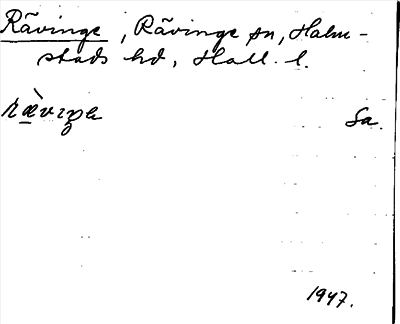 Rävinge, Rävinge sn, Halm-
stads hd, Hall. l.
Sa.
1947.